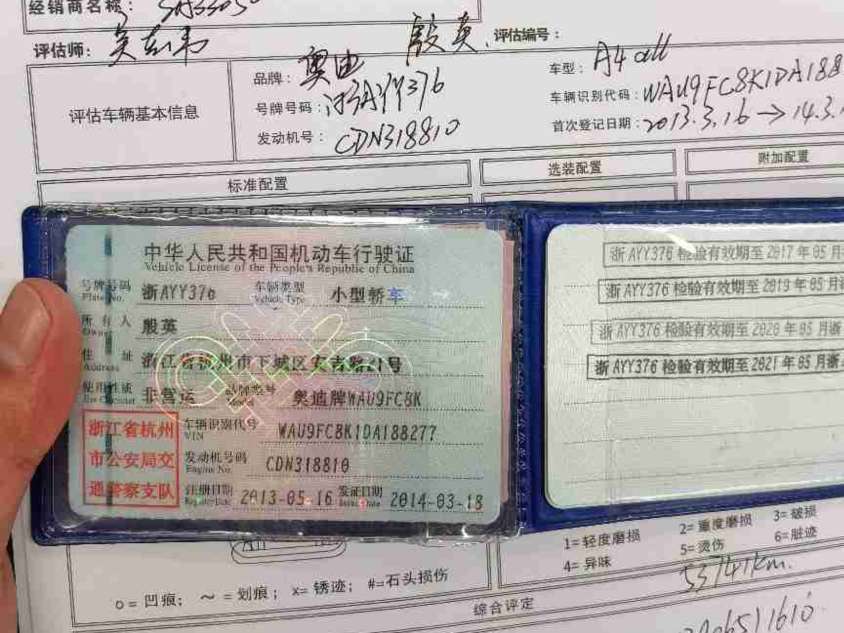 经销商名称：
评估师：
评估编号：
评估车辆基本信息
品牌：奥迪 殷英
车型：A4 all
号牌号码：浙AYY376
车辆识别代码：WAU9FC8K1DA188
发动机号：CDN318810
首次登记日期：2013.3.16→14.3.1
标准配置
选装配置
附加配置
中华人民共和国机动车行驶证
Vehicle License of the People's Republic of China
号牌号码 浙AYY376 车辆类型 小型轿车
Plate No. Vehicle Type
所有人 殷英
Owner
住址 浙江省杭州市下城区安吉路21号
Address
使用性质 非营运 品牌型号 奥迪牌WAU9FC8K
Use Character Model
浙江省杭州市公安局交通警察支队
车辆识别代号 WAU9FC8K1DA188277
VIN
发动机号码 CDN318810
Engine No.
注册日期 2013-05-16 发证日期 2014-03-18
Register Date Issue Date
浙AYY376检验有效期至2017年05月
浙AYY376检验有效期至2019年05月浙
浙AYY376检验有效期至2020年05月浙
浙AYY376检验有效期至2021年05月浙
1=轻度磨损 2=重度磨损 3=破损
4=异味 5=烫伤 6=脏迹
o=凹痕； ～=划痕； x=锈迹； #=石头损伤
53141km.
综合评定